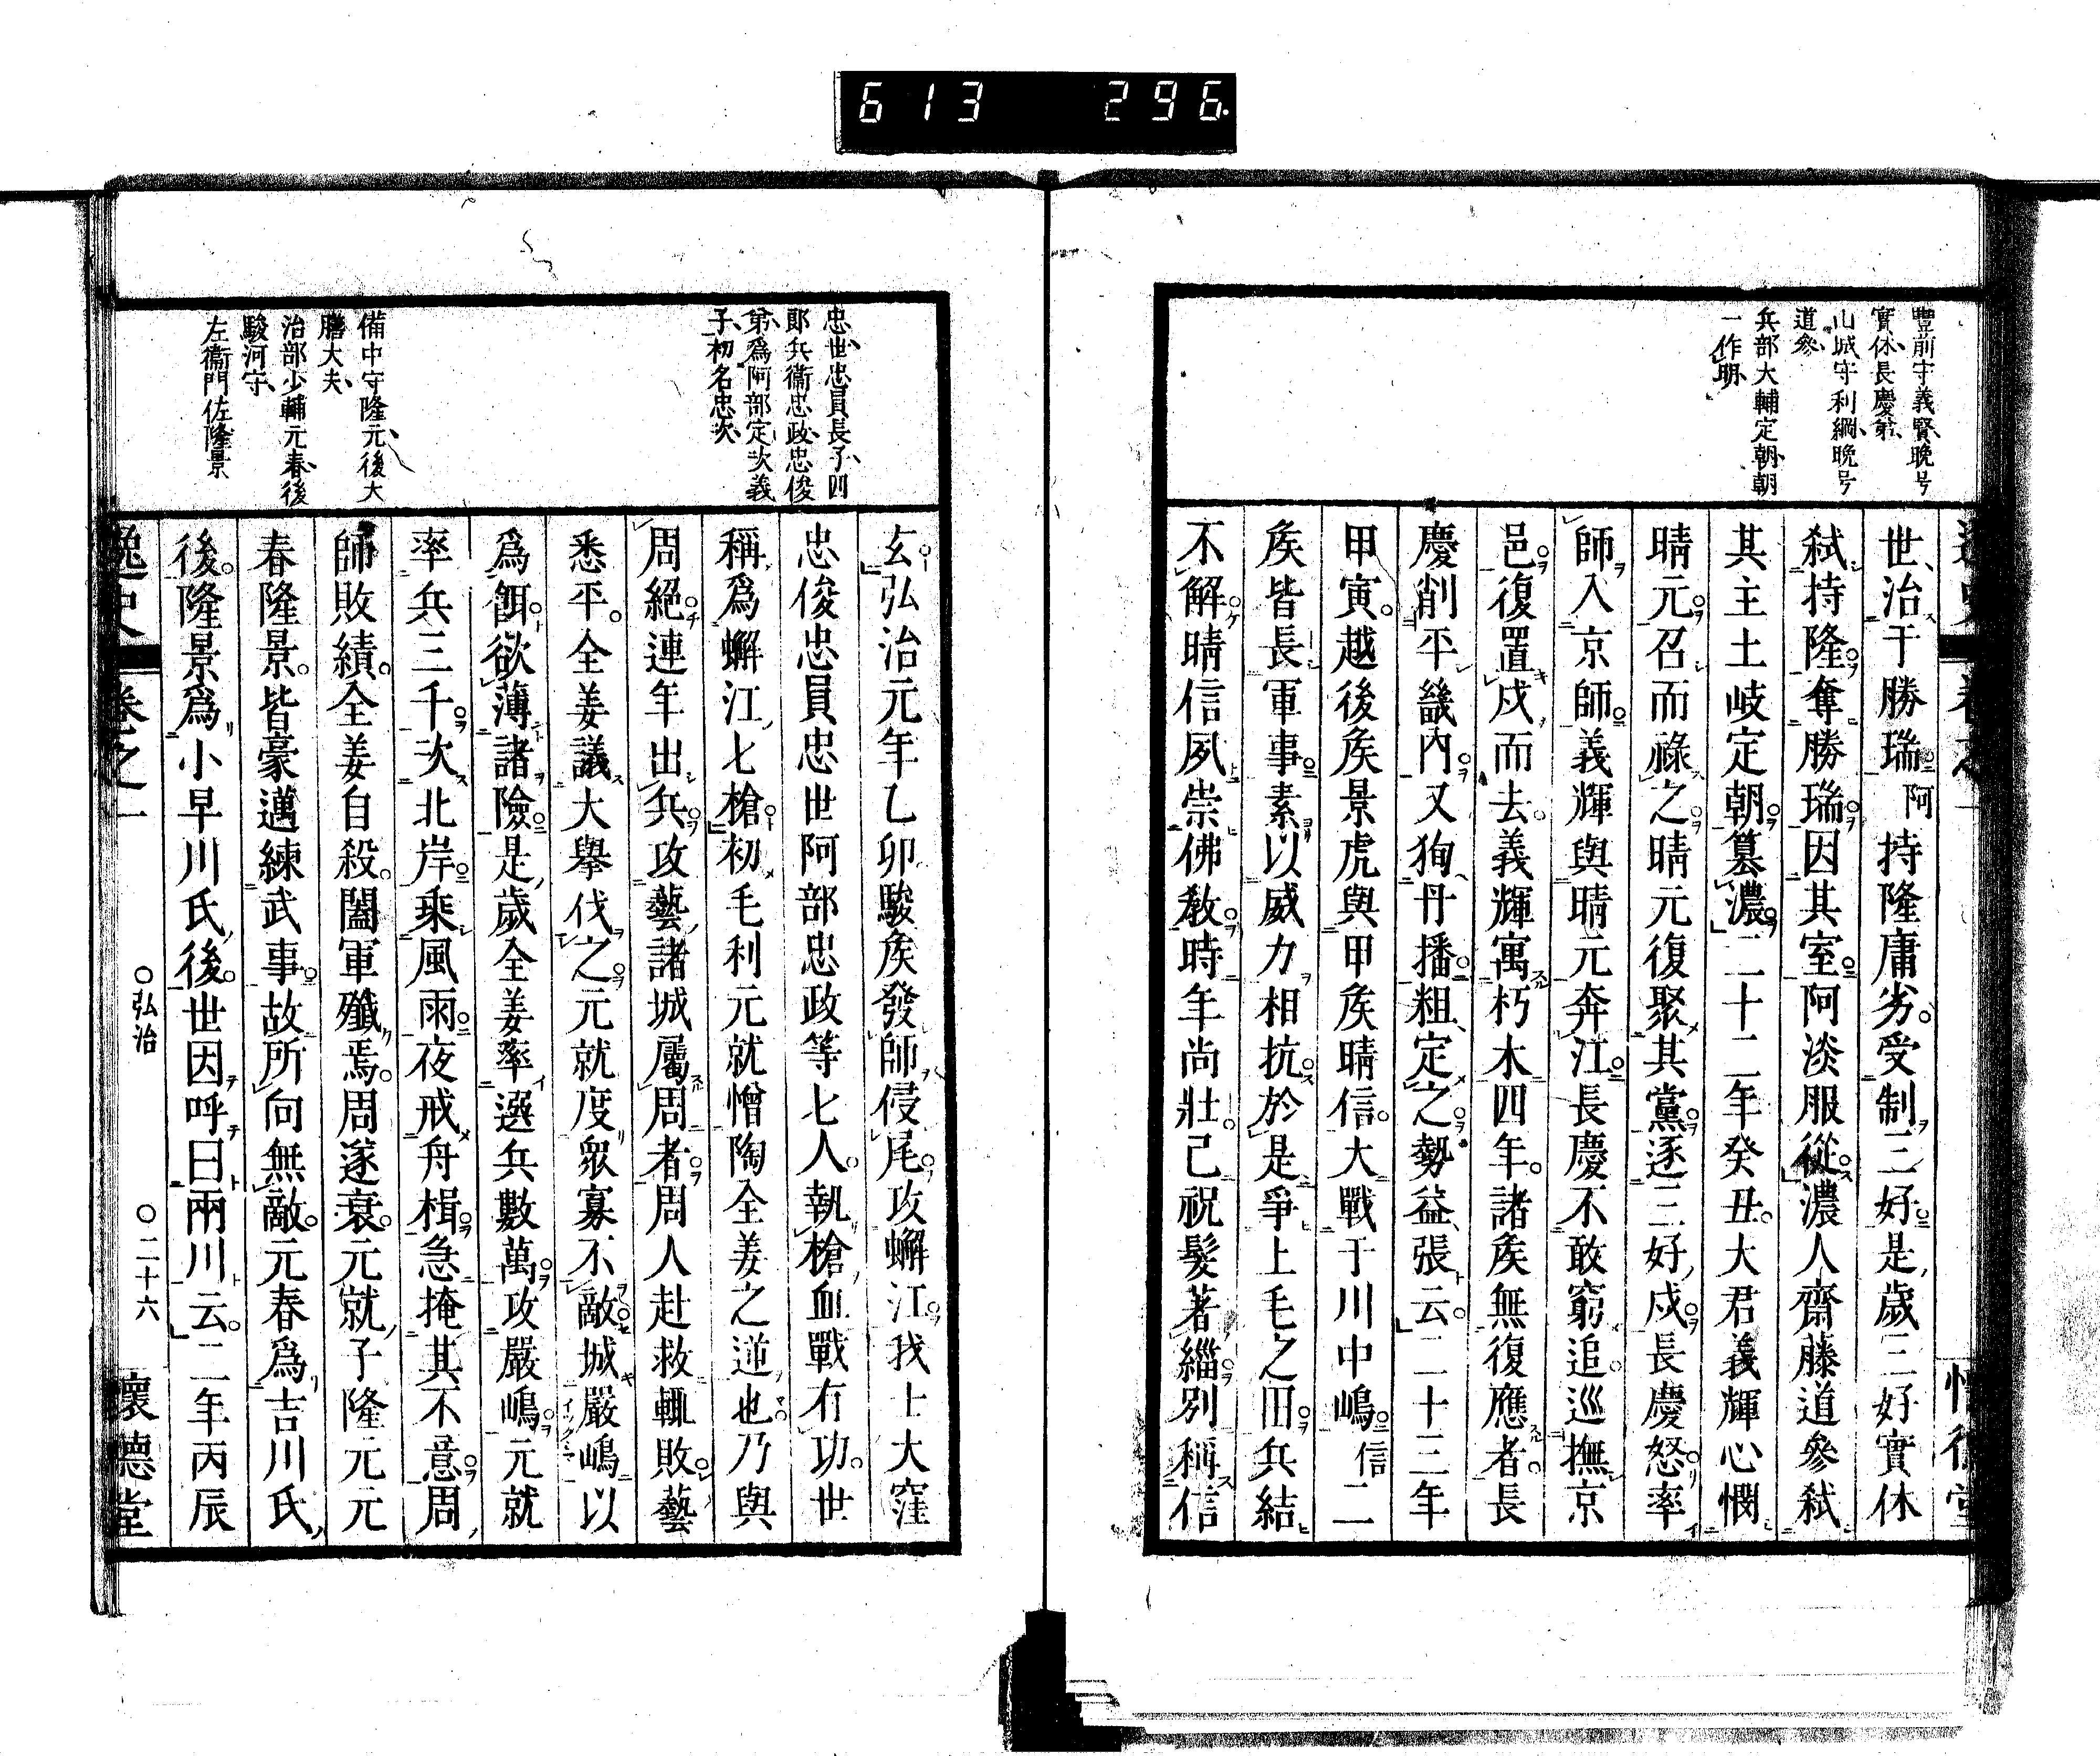 613 296
豐前守義賢晩号
實休長慶弟
山城守利綱晩号
道參
兵部大輔定朝朝
一作明
世治于勝瑞阿持隆庸劣受制三好是歲三好實休
弑持隆奪勝瑞因其室阿淡服從濃人齋藤道參弑
其主土岐定朝簒濃二十二年癸丑大君義輝心憫
晴元召而祿之晴元復聚其黨逐三好戍長慶怒率
師入京師義輝與晴元奔江長慶不敢窮追巡撫京
邑復置戍而去義輝寓朽木四年諸矦無復應者長
慶削平畿內又狥丹播粗定之勢益張云二十三年
甲寅越後矦景虎與甲矦晴信大戰于川中嶋信二
矦皆長軍事素以威力相抗於是爭上毛之田兵結
不解晴信夙崇佛敎時年尚壯己祝髮著緇別稱信
忠世忠員長子四
郎兵衞忠政忠俊
弟爲阿部定次義
子初名忠次
備中守隆元後大
膳大夫
治部少輔元春後
駿河守
左衞門佐隆景
玄弘治元年乙卯駿矦發師侵尾攻蠏江我上大窪
忠俊忠員忠世阿部忠政等七人執槍血戰有功世
稱爲蠏江七槍初毛利元就憎陶全姜之逆也乃與
周絕連年出兵攻藝諸城屬周者周人赴救輒敗藝
悉平全姜議大擧伐之元就度衆寡不敵城嚴嶋以
爲餌欲薄諸險是歲全姜率選兵數萬攻嚴嶋元就
率兵三千次北岸乘風雨夜戒舟楫急掩其不意周
師敗績全姜自殺闔軍殲焉周遂衰元就子隆元元
春隆景皆豪邁練武事故所向無敵元春爲吉川氏
後隆景爲小早川氏後世因呼曰兩川云二年丙辰
逸史 卷之一 ○弘治 ○二十六 懷德堂